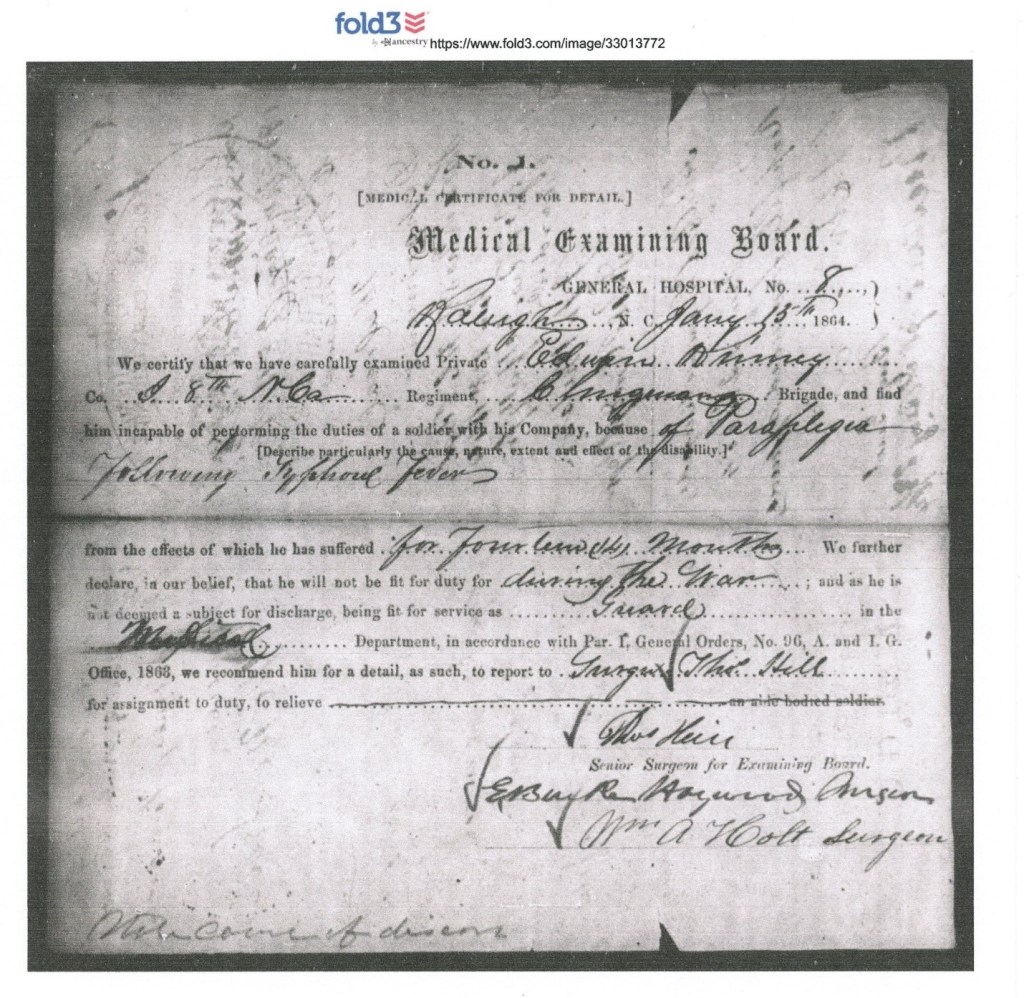 fold3
by ancestry https://www.fold3.com/image/33013772
No. 1.
[MEDICAL CERTIFICATE FOR DETAIL.]
Medical Examining Board.
GENERAL HOSPITAL, No. 8
Raleigh N. C. Jany 15th 1864.
We certify that we have carefully examined Private Edwin
Co. I 8th N. Ca Regiment, Clingmans Brigade, and find
him incapable of performing the duties of a soldier with his Company, because of Paraplegia
[Describe particularly the cause, nature, extent and effect of the disability.]
Following Typhoid Fever
from the effects of which he has suffered for Fourteen (14) Months We further
declare, in our belief, that he will not be fit for duty for during the War ; and as he is
not deemed a subject for discharge, being fit for service as Guard in the
Medical Department, in accordance with Par. I, General Orders, No. 96, A. and I. G.
Office, 1863, we recommend him for a detail, as such, to report to Surgeon Thos Hill
for assignment to duty, to relieve an able bodied soldier.
Thos Hill
Senior Surgeon for Examining Board.
E Burke Haywood Surgeon
Wm A Holt Surgeon